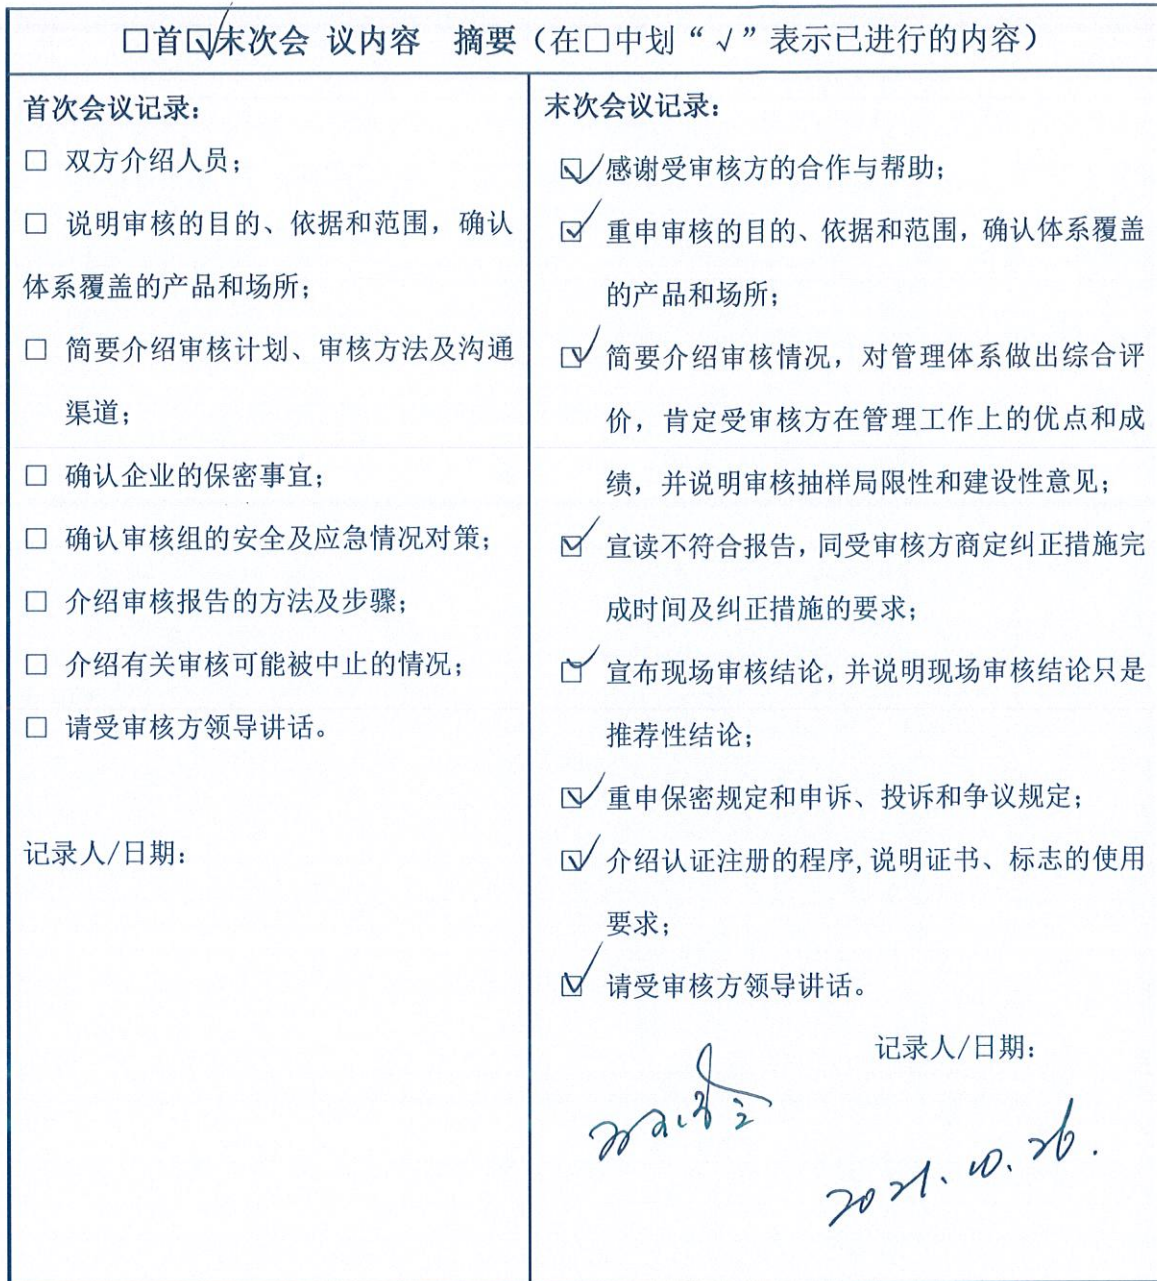 □首☑末次会 议内容 摘要（在□中划“√”表示已进行的内容）
首次会议记录：
□ 双方介绍人员；
□ 说明审核的目的、依据和范围，确认
体系覆盖的产品和场所；
□ 简要介绍审核计划、审核方法及沟通
渠道；
□ 确认企业的保密事宜；
□ 确认审核组的安全及应急情况对策；
□ 介绍审核报告的方法及步骤；
□ 介绍有关审核可能被中止的情况；
□ 请受审核方领导讲话。
记录人/日期：
末次会议记录：
☑ 感谢受审核方的合作与帮助；
☑ 重申审核的目的、依据和范围，确认体系覆盖
的产品和场所；
☑ 简要介绍审核情况，对管理体系做出综合评
价，肯定受审核方在管理工作上的优点和成
绩，并说明审核抽样局限性和建设性意见；
☑ 宣读不符合报告，同受审核方商定纠正措施完
成时间及纠正措施的要求；
☑ 宣布现场审核结论，并说明现场审核结论只是
推荐性结论；
☑ 重申保密规定和申诉、投诉和争议规定；
☑ 介绍认证注册的程序，说明证书、标志的使用
要求；
☑ 请受审核方领导讲话。
记录人/日期：
2021.10.26.